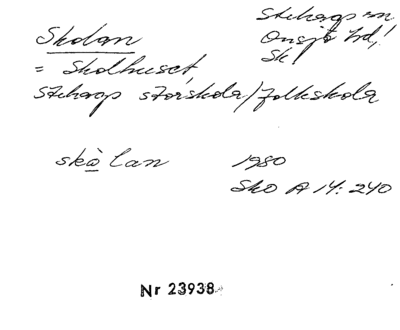 Skolan
Stehags sn.
Onsjö hd,
Sk
= Skolhuset,
Stehags storskola/folkskola
skå lan 1980
Sko A 14: 240
Nr 23938